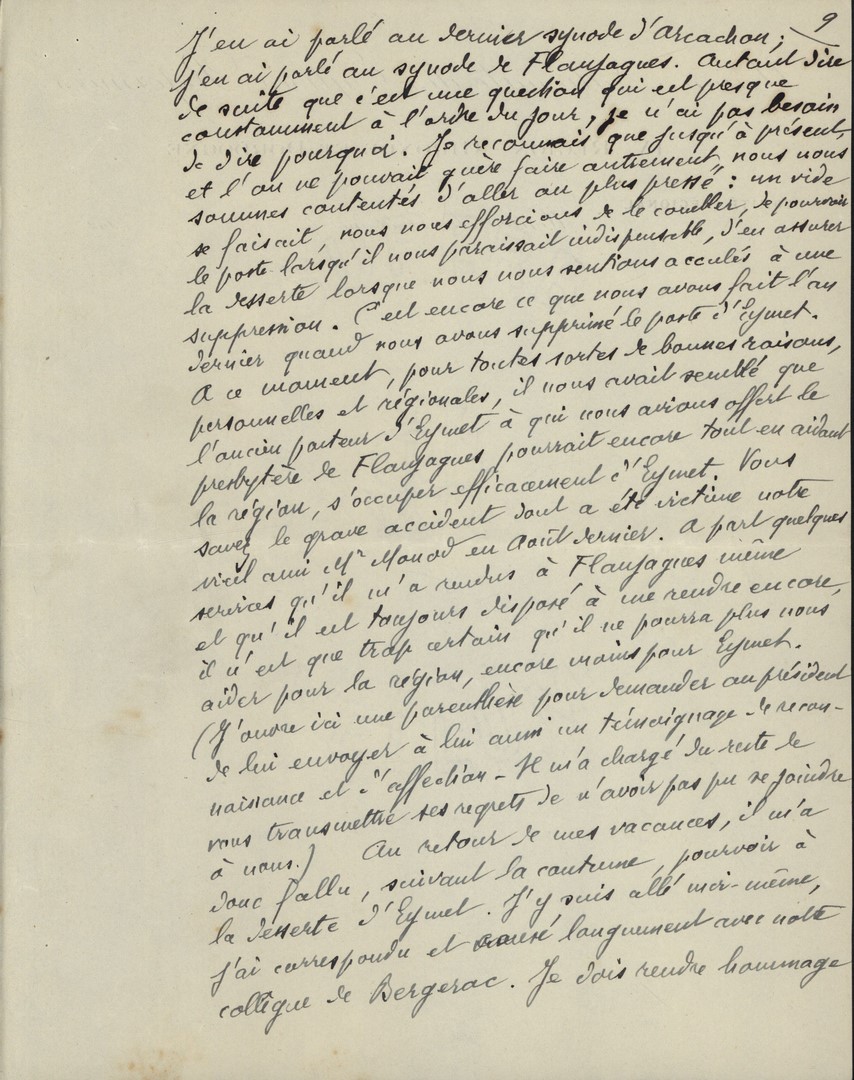 9
J'en ai parlé au dernier synode d'Arcachon ;
j'en ai parlé au synode de Flaujagues. Autant dire
de suite que c'est une question qui est presque
constamment à l'ordre du jour, je n'ai pas besoin
de dire pourquoi. Je reconnais que jusqu'à présent,
et l'on ne pouvait guère faire autrement, nous nous
sommes contentés d'aller au plus pressé : un vide
se faisait, nous nous efforcions de le combler, de pourvoir
le poste lorsqu'il nous paraissait indispensable, d'en assurer
la desserte lorsque nous nous sentions acculés à une
suppression. C'est encore ce que nous avons fait l'an
dernier quand nous avons supprimé le poste d'Eymet.
A ce moment, pour toutes sortes de bonnes raisons,
personnelles et régionales, il nous avait semblé que
l'ancien pasteur d'Eymet à qui nous avions offert le
presbytère de Flaujagues pourrait encore tout en aidant
la région, s'occuper efficacement d'Eymet. Vous
savez le grave accident dont a été victime notre
vieil ami Mr Monod en Août dernier. A part quelques
services qu'il m'a rendus à Flaujagues même
et qu'il est toujours disposé à me rendre encore,
il n'est que trop certain qu'il ne pourra plus nous
aider pour la région, encore moins pour Eymet.
(J'ouvre ici une parenthèse pour demander au président
de lui envoyer à lui aussi un témoignage de recon-
naissance et d'affection - Il m'a chargé du reste de
vous transmettre ses regrets de n'avoir pas pu se joindre
à nous.) Au retour de mes vacances, il m'a
donc fallu, suivant la coutume, pourvoir à
la desserte d'Eymet. J'y suis allé moi-même,
j'ai correspondu et causé longuement avec notre
collègue de Bergerac. Je dois rendre hommage